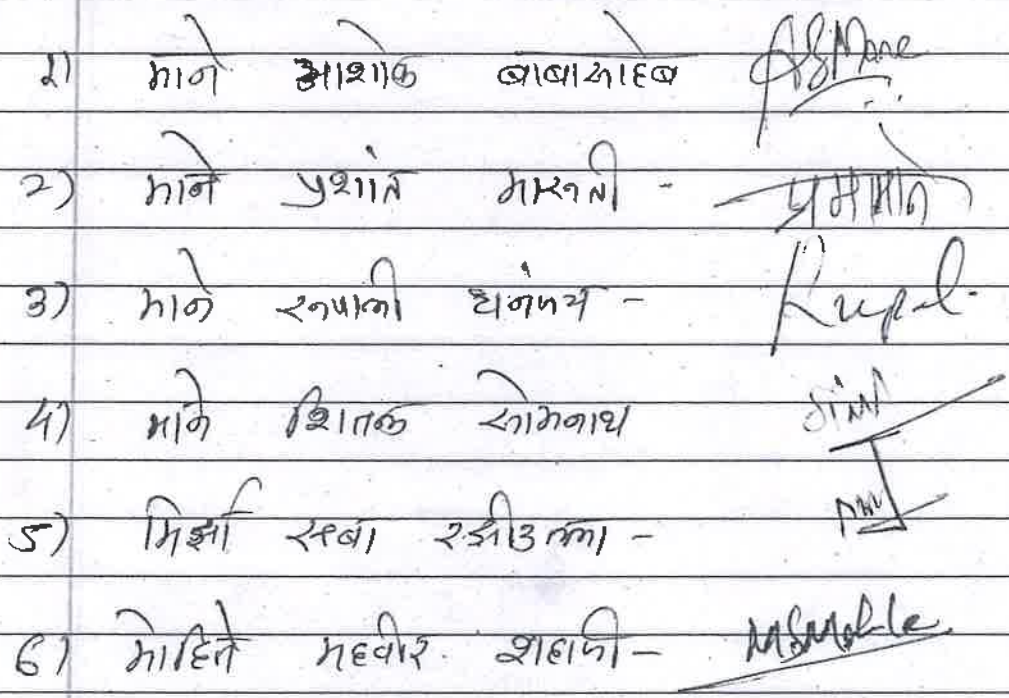 १) माने आशोक बाबासाहेब ABMane
२) माने प्रशांत मारुती - प्रमामाने
३) माने रुपाली धनंजय - Rupal
४) माने शितल सोमनाथ
५) मिर्झा रझीउल्ला -
६) मोहिते महवीर शहाजी - MSMohite